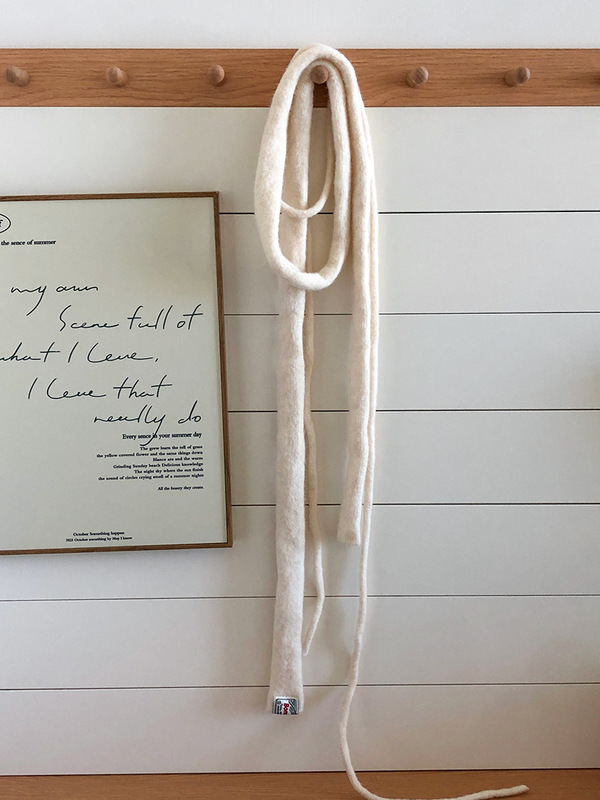 the sence of summer
my own
Scene full of
what I love,
I love that
really do
Every sence in your summer day
The grow learn the tell of grass
the yellow covered flower and the same things down
Blance are and the warm
Grinding Sunday beach Delicious knowledge
The night sky where the sun finish
the sound of circles crying smell of a summer nights
All the beauty they create.
October Something happen
2021 October something by May I know